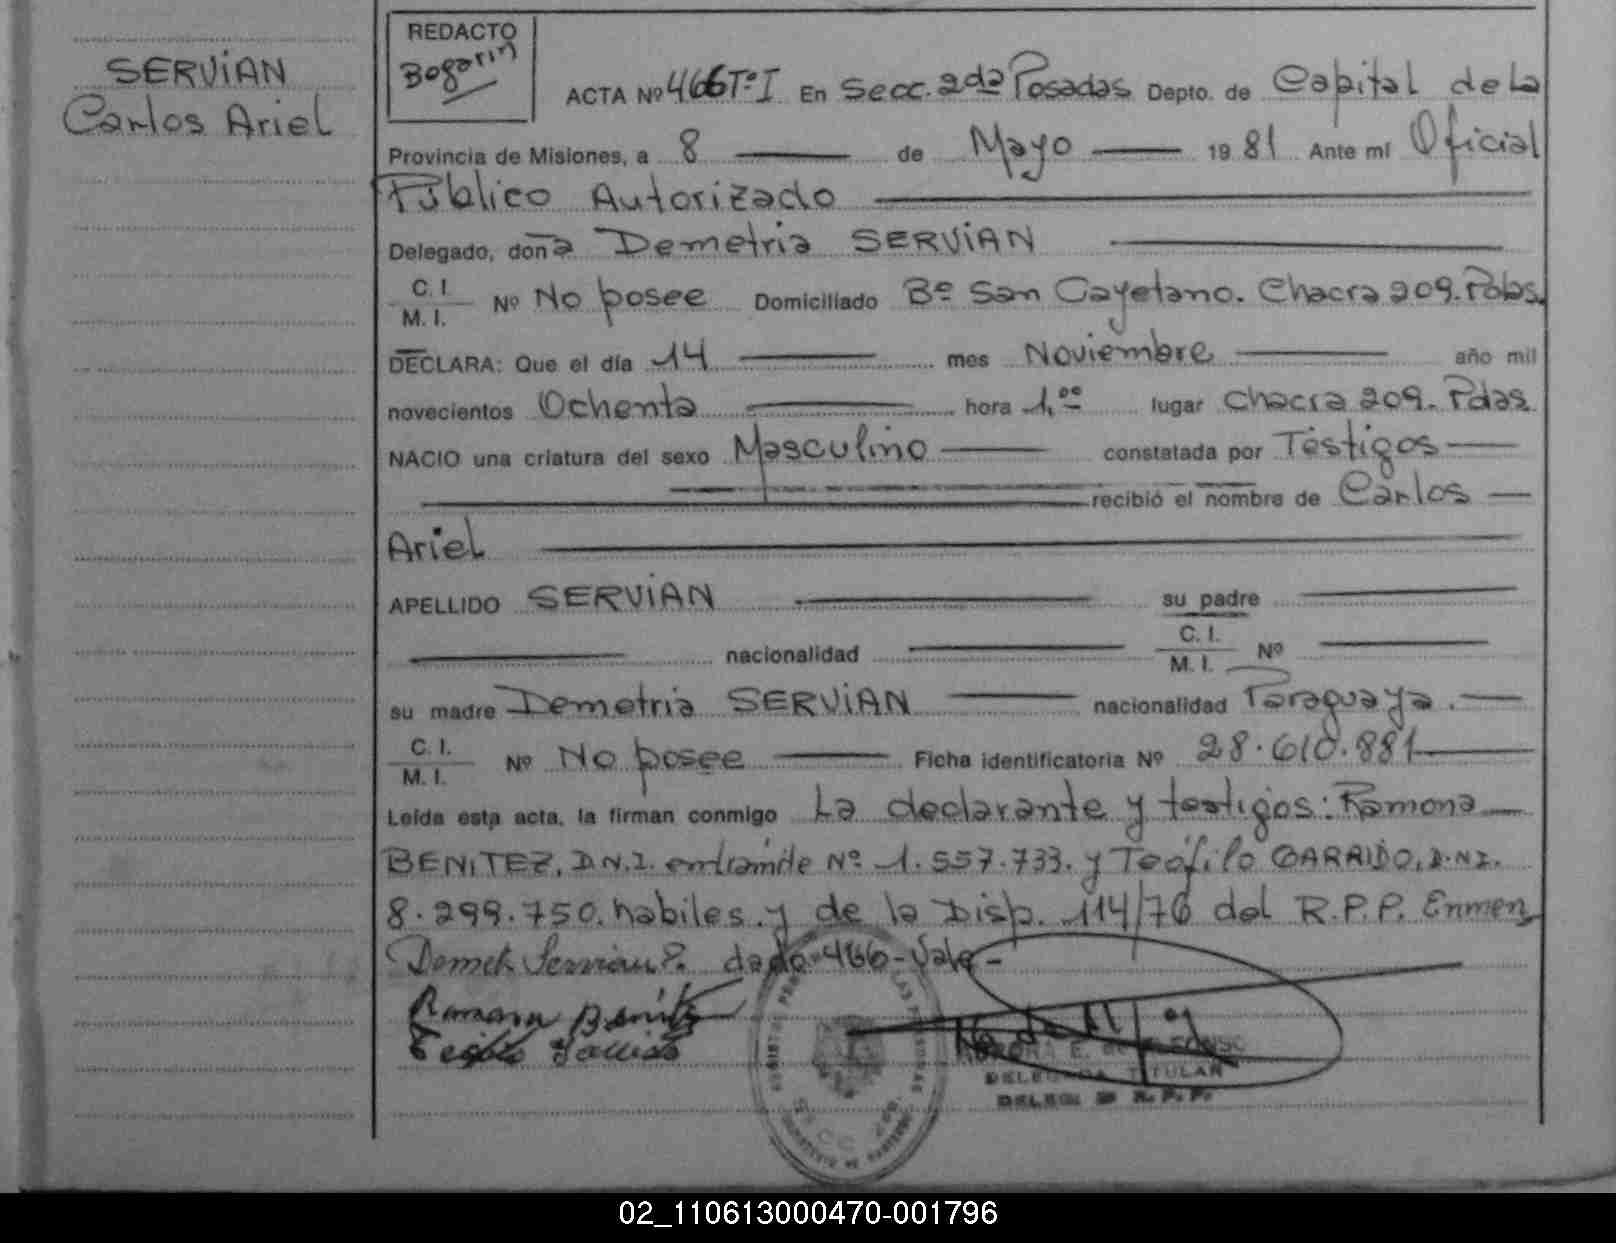 SERVIAN
Carlos Ariel
REDACTO
Bogarin
ACTA Nº 466 Tº I En Secc. 2da Posadas Depto. de Capital de la
Provincia de Misiones, a 8 de Mayo 19 81 Ante mi Oficial
Público Autorizado
Delegado, don a Demetria SERVIAN
C. I.
M. I. Nº No posee Domiciliado Bº San Cayetano. Chacra 209. Pdas.
DECLARA: Que el día 14 mes Noviembre año mil
novecientos Ochenta hora 1,00 lugar Chacra 209. Pdas.
NACIO una criatura del sexo Masculino constatada por Testigos
recibió el nombre de Carlos
Ariel
APELLIDO SERVIAN su padre
nacionalidad C. I.
M. I. Nº
su madre Demetria SERVIAN nacionalidad Paraguaya.
C. I.
M. I. Nº No posee Ficha identificatoria Nº 28.610.881
Leída esta acta, la firman conmigo La declarante y testigos: Ramona
BENITEZ, D.N.I. entramite Nº 1.557.733. y Teófilo GARRIDO, D.N.I.
8.299.750. habiles y de la Disp. 114/76 del R.P.P. Enmen
dado-466-Vale-
Ramona Benitez
DELEGADA TITULAR
R. P. P.
02_110613000470-001796